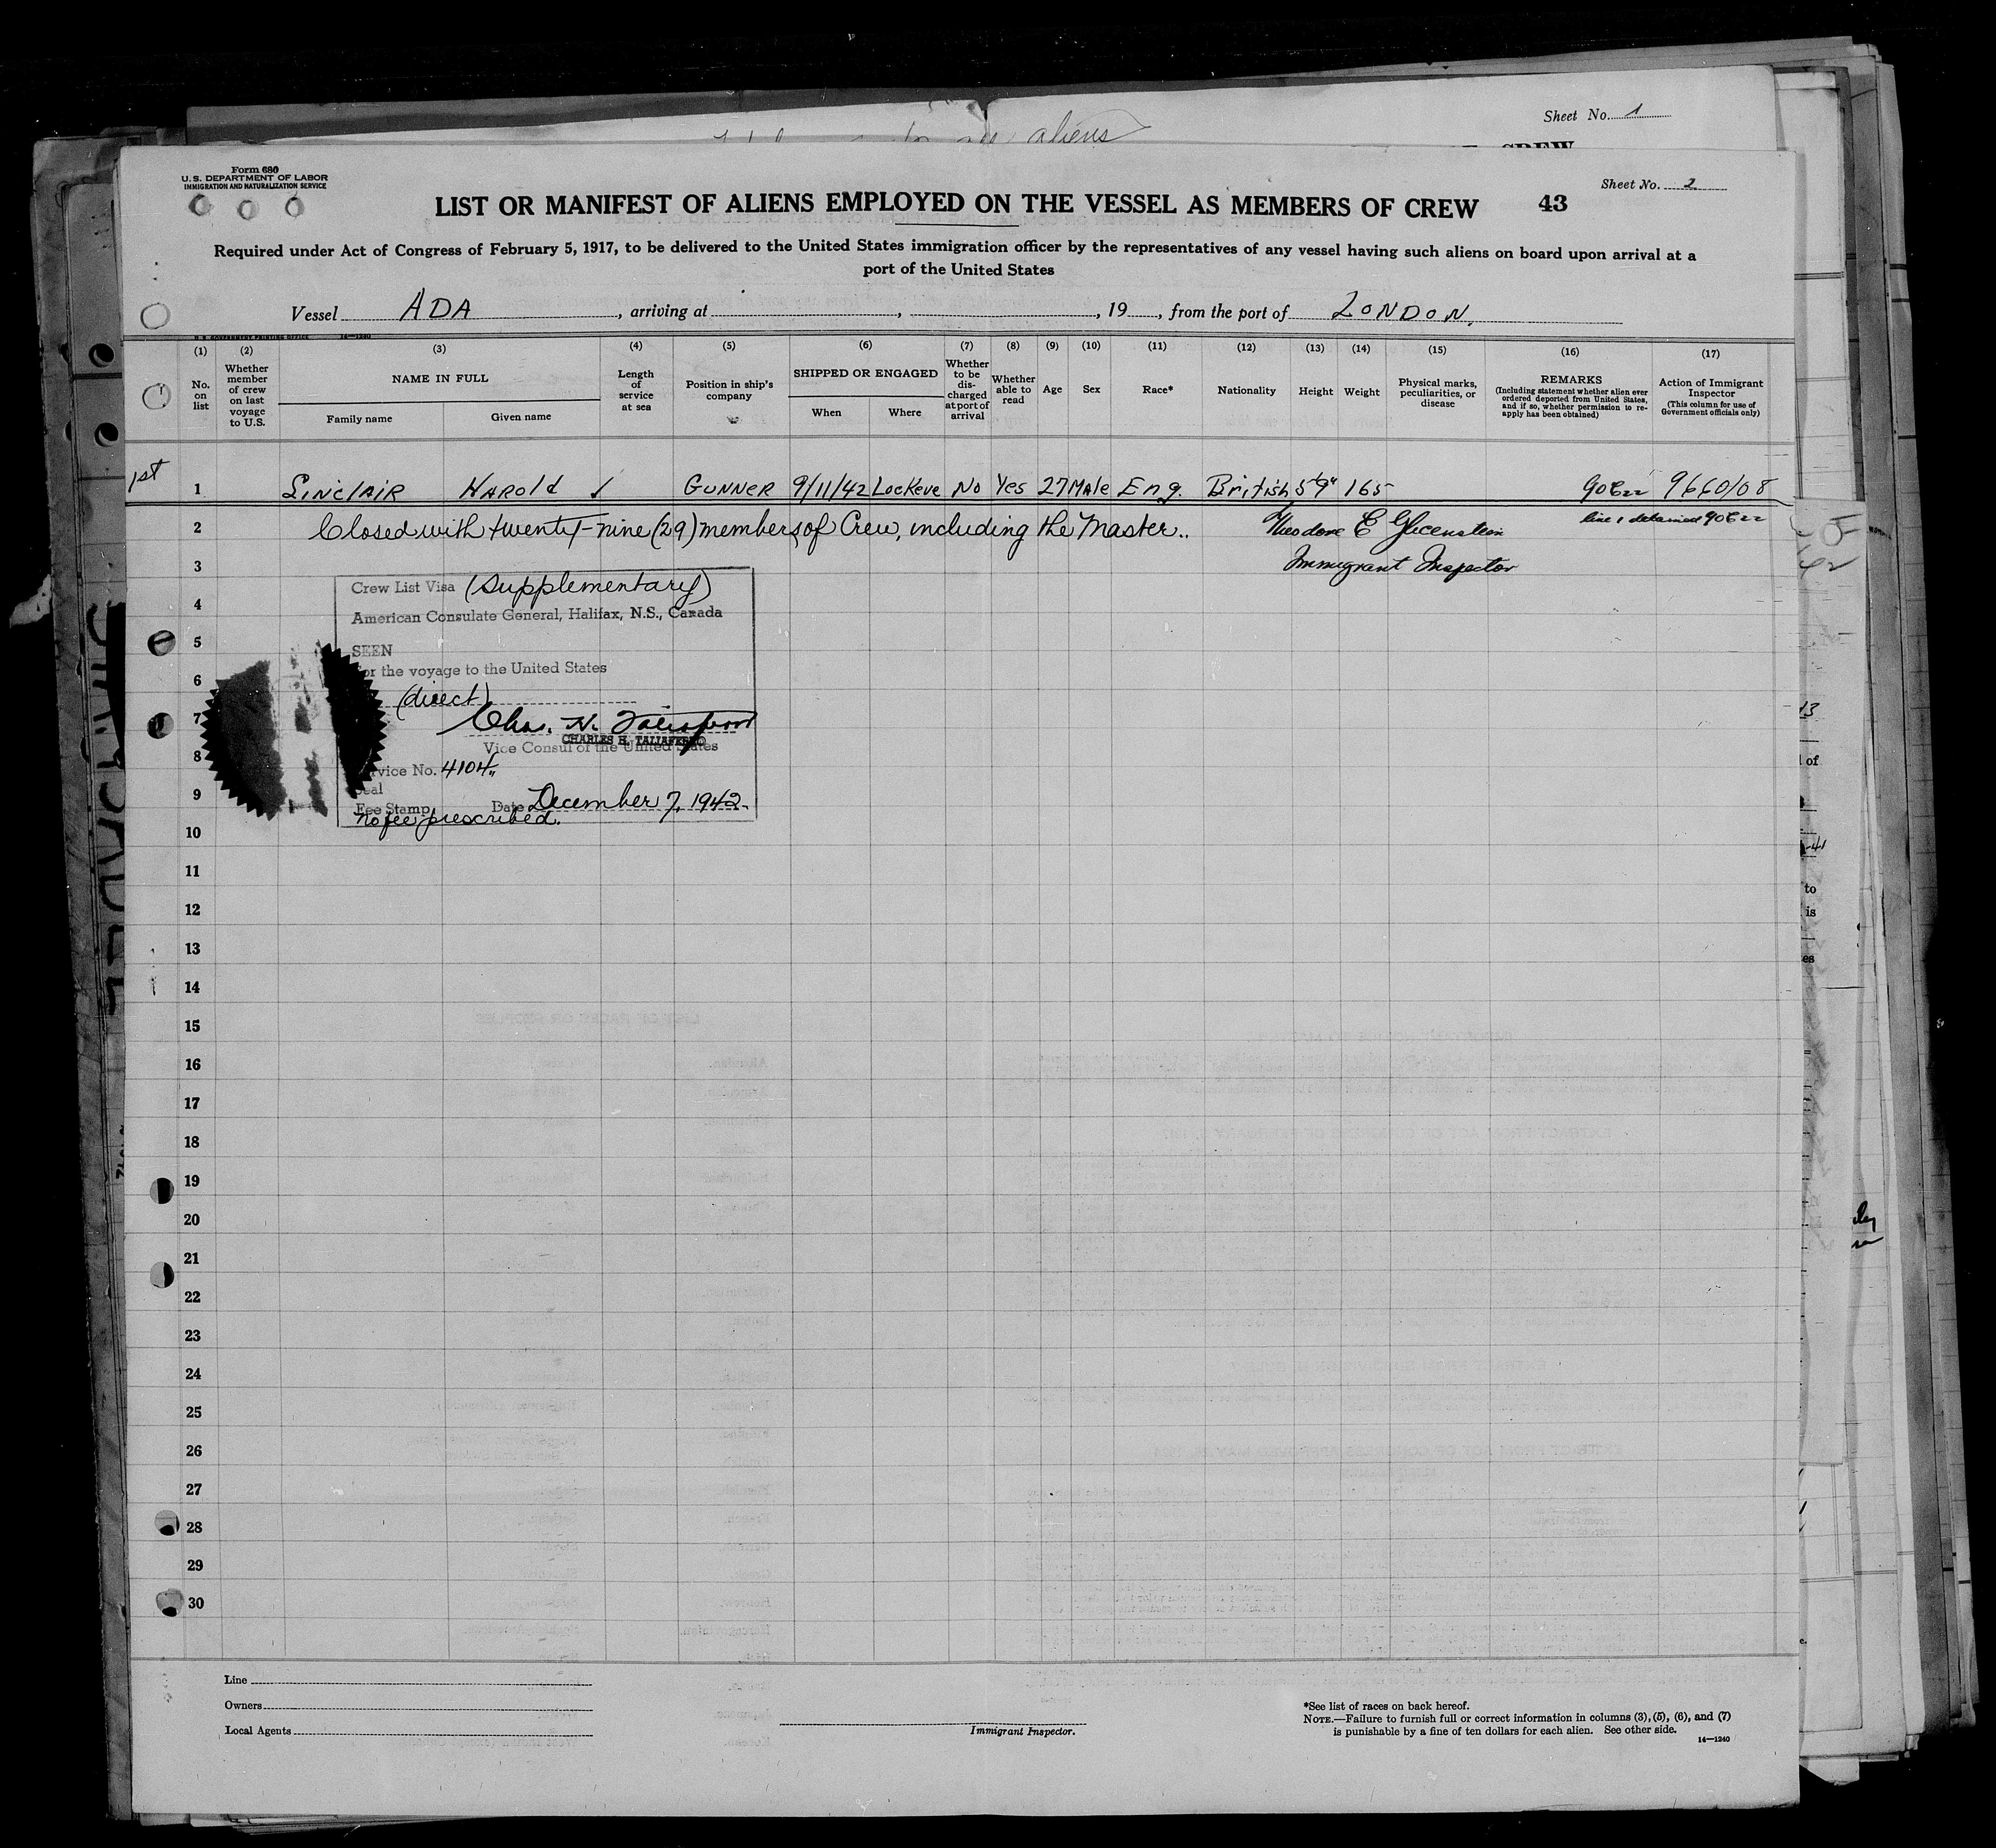 aliens
Sheet No. 1
CREW
Form 680
U. S. DEPARTMENT OF LABOR
IMMIGRATION AND NATURALIZATION SERVICE
Sheet No. 2
LIST OR MANIFEST OF ALIENS EMPLOYED ON THE VESSEL AS MEMBERS OF CREW 43
Required under Act of Congress of February 5, 1917, to be delivered to the United States immigration officer by the representatives of any vessel having such aliens on board upon arrival at a
port of the United States
Vessel ADA, arriving at , , 19 , from the port of LONDON.
U. S. GOVERNMENT PRINTING OFFICE 14—1240
(1) (2) (3) (4) (5) (6) (7) (8) (9) (10) (11) (12) (13) (14) (15) (16) (17)
No. on list
Whether member of crew on last voyage to U.S.
NAME IN FULL
Family name Given name
Length of service at sea
Position in ship's company
SHIPPED OR ENGAGED
When Where
Whether to be discharged at port of arrival
Whether able to read
Age
Sex
Race*
Nationality
Height
Weight
Physical marks, peculiarities, or disease
REMARKS
(Including statement whether alien ever ordered deported from United States, and if so, whether permission to re-apply has been obtained)
Action of Immigrant Inspector
(This column for use of Government officials only)
1st
1 SINCLAIR HAROLD / GUNNER 9/11/42 No Yes 27 Male Eng. British 5'9" 165 9660/08
2 Closed with twenty-nine (29) members of Crew, including the Master.. Theodore E line 1 detained
3 Immigrant Inspector
Crew List Visa (supplementary)
4
American Consulate General, Halifax, N.S., Canada
5
SEEN
For the voyage to the United States
6
(direct)
7
CHARLES H. TALIAFERRO
Vice Consul of the United States
8
Service No. 4104
Seal
9
Fee Stamp Date December 7, 1942.
No fee prescribed.
10
11
12
13
14
15
16
17
18
19
20
21
22
23
24
25
26
27
28
29
30
Line
Owners
Local Agents
Immigrant Inspector.
*See list of races on back hereof.
NOTE.—Failure to furnish full or correct information in columns (3), (5), (6), and (7)
is punishable by a fine of ten dollars for each alien. See other side.
14—1240